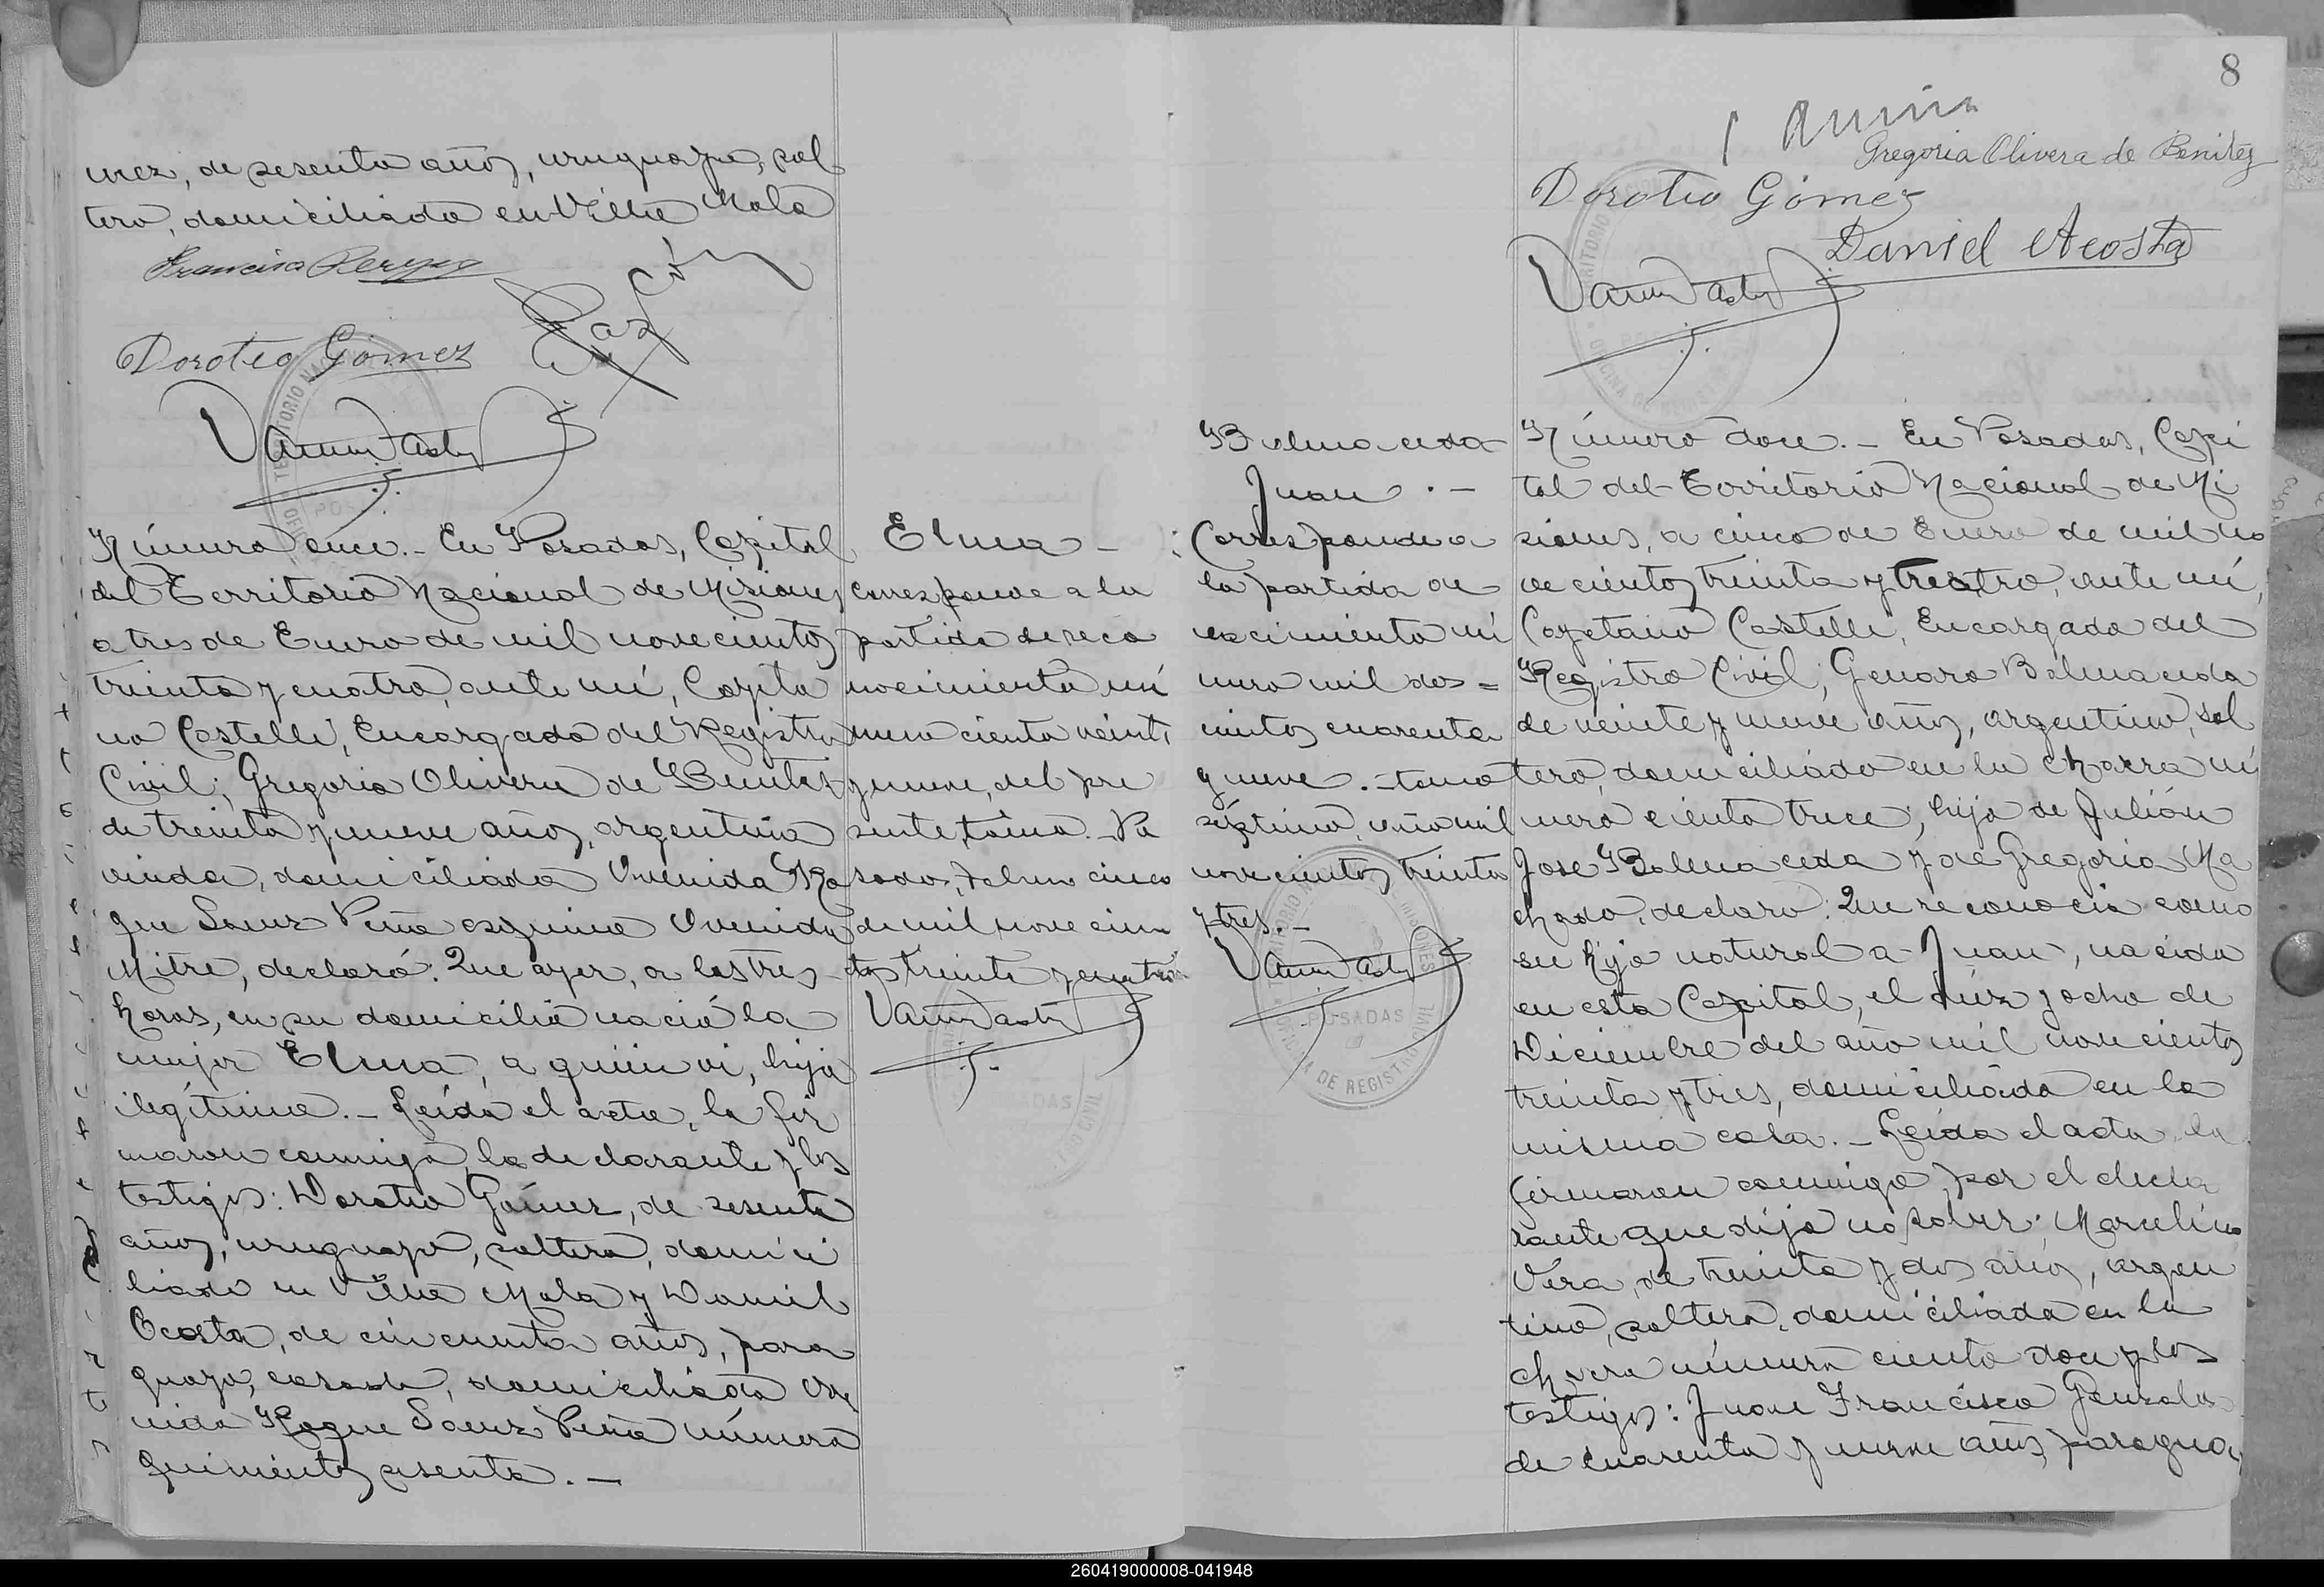 mez, de sesenta años, uruguayo, sol
tero, domiciliado en Villa Mola
Doroteo Gómez
Número once.- En Posadas, Capital
del Territorio Nacional de Misiones
a tres de Enero de mil novecientos
treinta y cuatro, ante mí, Cayeta
no Castelli, Encargado del Registro
Civil; Gregoria Olivera de Benitez
de treinta y nueve años, argentina
viuda, domiciliada Avenida Ro
que Saenz Peña esquina Avenida
Mitre, declaró: Que ayer, a las tres
horas, en su domicilio nació la
mujer Elma, a quien vi, hija
ilegítima.- Leída el acta, la fir
maron conmigo, la declarante y los
testigos: Doroteo Gómez, de sesenta
años, uruguayo, soltero, domici
liado en Villa Mola y Daniel
Acosta, de cincuenta años, para
guayo, casado, domiciliado Ave
nida Roque Saenz Peña número
quinientos sesenta.-
Elma -
Corresponde a la
partida de reco
nocimiento nú
mero ciento veinti
y nueve, del pre
sente tomo.- Po
sadas, Febrero cinco
de mil nove cien
tos treinta y cuatro
8
Gregoria Olivera de Benitez
Doroteo Gómez
Daniel Acosta
Balmaceda
Juan .-
Corresponde a
la partida de
nacimiento nú
mero mil dos =
cientos cuarenta
y nueve.- tomo
séptimo, año mil
novecientos treinta
y tres.-
Número doce.- En Posadas, Capi
tal del Territorio Nacional de Mi
siones, a cinco de Enero de mil no
vecientos treinta y tro, ante mí,
Cayetano Castelli, Encargado del
Registro Civil; Genaro Balmaceda
de veinte y nueve años, argentino, sol
tero, domiciliado en la chacra nú
mero ciento trece, hijo de Julián
José Balmaceda y de Gregoria Ma
chado, declaró: Que reconocía como
su hijo natural a Juan, nacido
en esta Capital, el diez y ocho de
Diciembre del año mil novecientos
treinta y tres, domiciliado en la
misma casa.- Leída el acta, la
firmaron conmigo, por el decla
rante que dijo no saber; Marcelino
Vera, de treinta y dos años, argen
tino, soltero, domiciliado en la
chacra número ciento doce y los
testigos: Juan Francisco Gonzalez
de cuarenta y nueve años, paragua
POSADAS
260419000008-041948